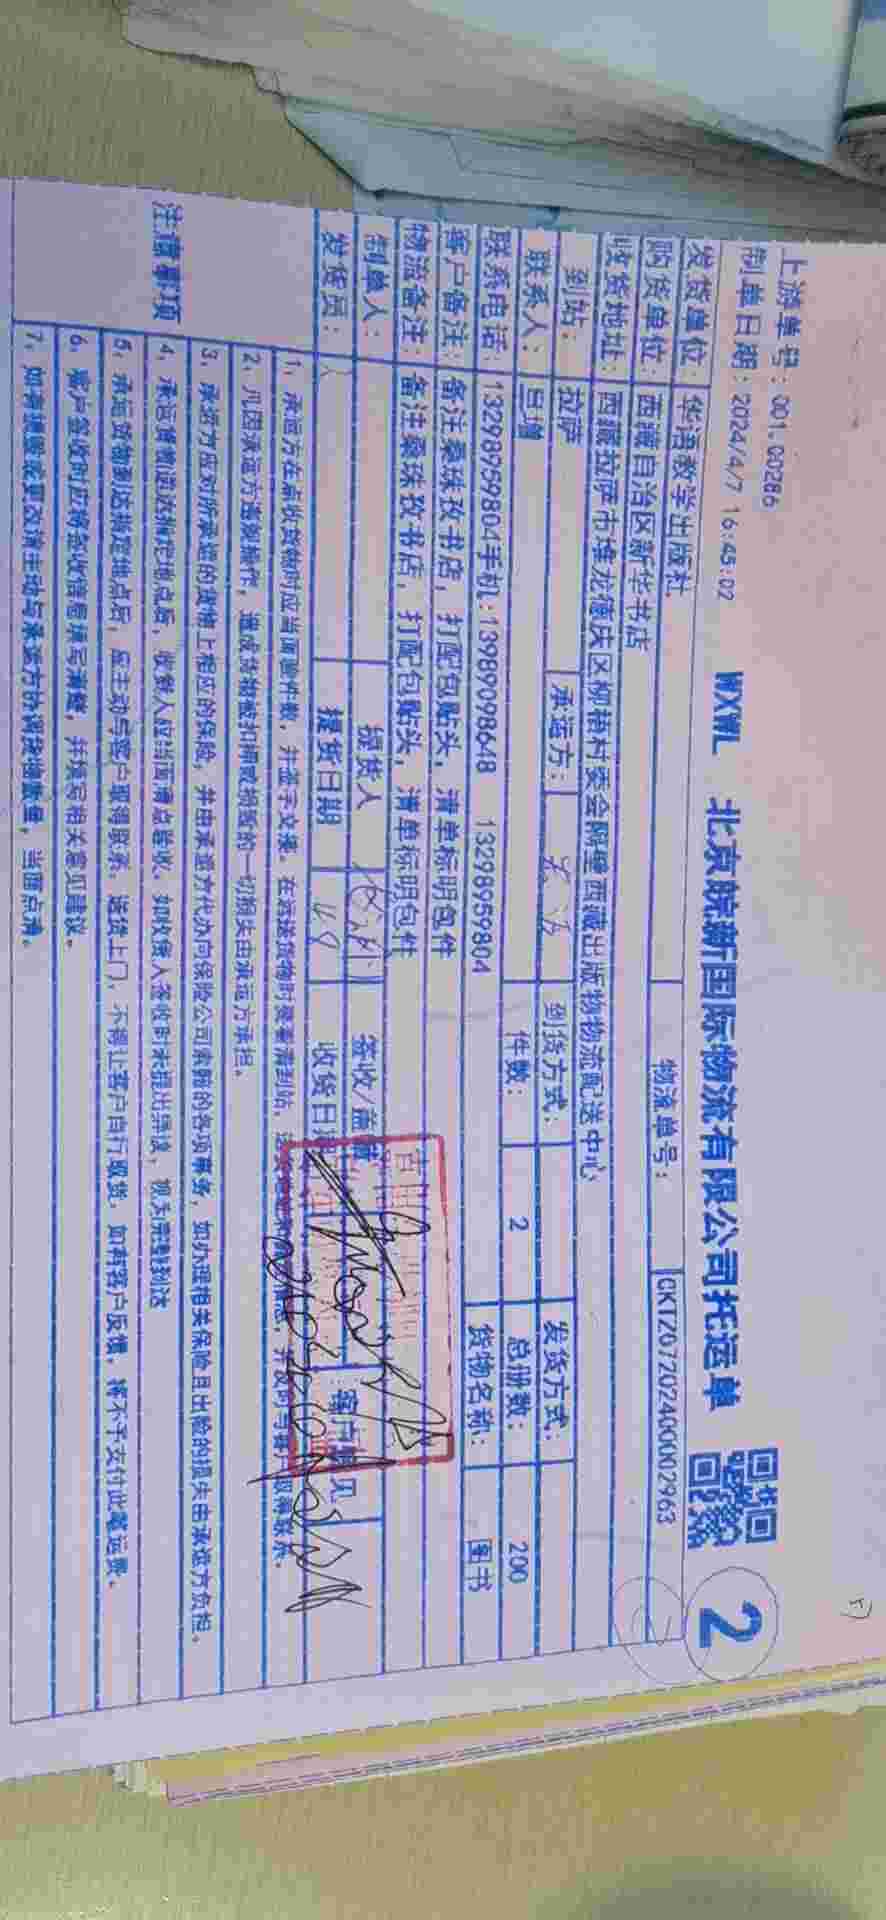 上游单号：001.00286
制单日期：2024/4/7 16:45:02
WXWL 北京皖新国际物流有限公司托运单
2
发货单位： 华语教学出版社 物流单号： CKTZ0720240002963
购货单位： 西藏自治区新华书店
收货地址： 西藏拉萨市堆龙德庆区柳梧村委会隔壁西藏出版物物流配送中心
到站： 拉萨 承运方： 到货方式： 发货方式：
联系人： 旦增 件数： 2 总册数： 200
联系电话： 13298959804手机：13989098648 13298959804 货物名称： 图书
客户备注： 备注桑珠孜书店，打配包贴头，清单标明包件
物流备注： 备注桑珠孜书店，打配包贴头，清单标明包件
制单人： 提货人 签收/盖章
发货员： 提货日期 4.8 收货日期 客户意见
注意事项
1、承运方在条收货物时应当面验件数，并签字交接。在运送货物时要看清到站，
2、凡因承运方遗漏操作，造成货物被扣押或损毁的一切损失由承运方承担。
3、承运方应对所承运的货物上相应的保险，并由承运方代办向保险公司索赔的各项事务，如办理相关保险且出险的损失由承运方负担。
4、承运货物运送指定地点后，收货人应当面清点验收，如收货人签收时未提出异议，视为完整到达
5、承运货物到达指定地点后，应主动与客户取得联系，送货上门，不得让客户自行取货，如有客户反馈，将不予支付此笔运费。
6、客户签收时应将签收信息填写清楚，并填写相关意见建议。
7、如有破损或更改请主动与承运方协调货物数量，当面点清。